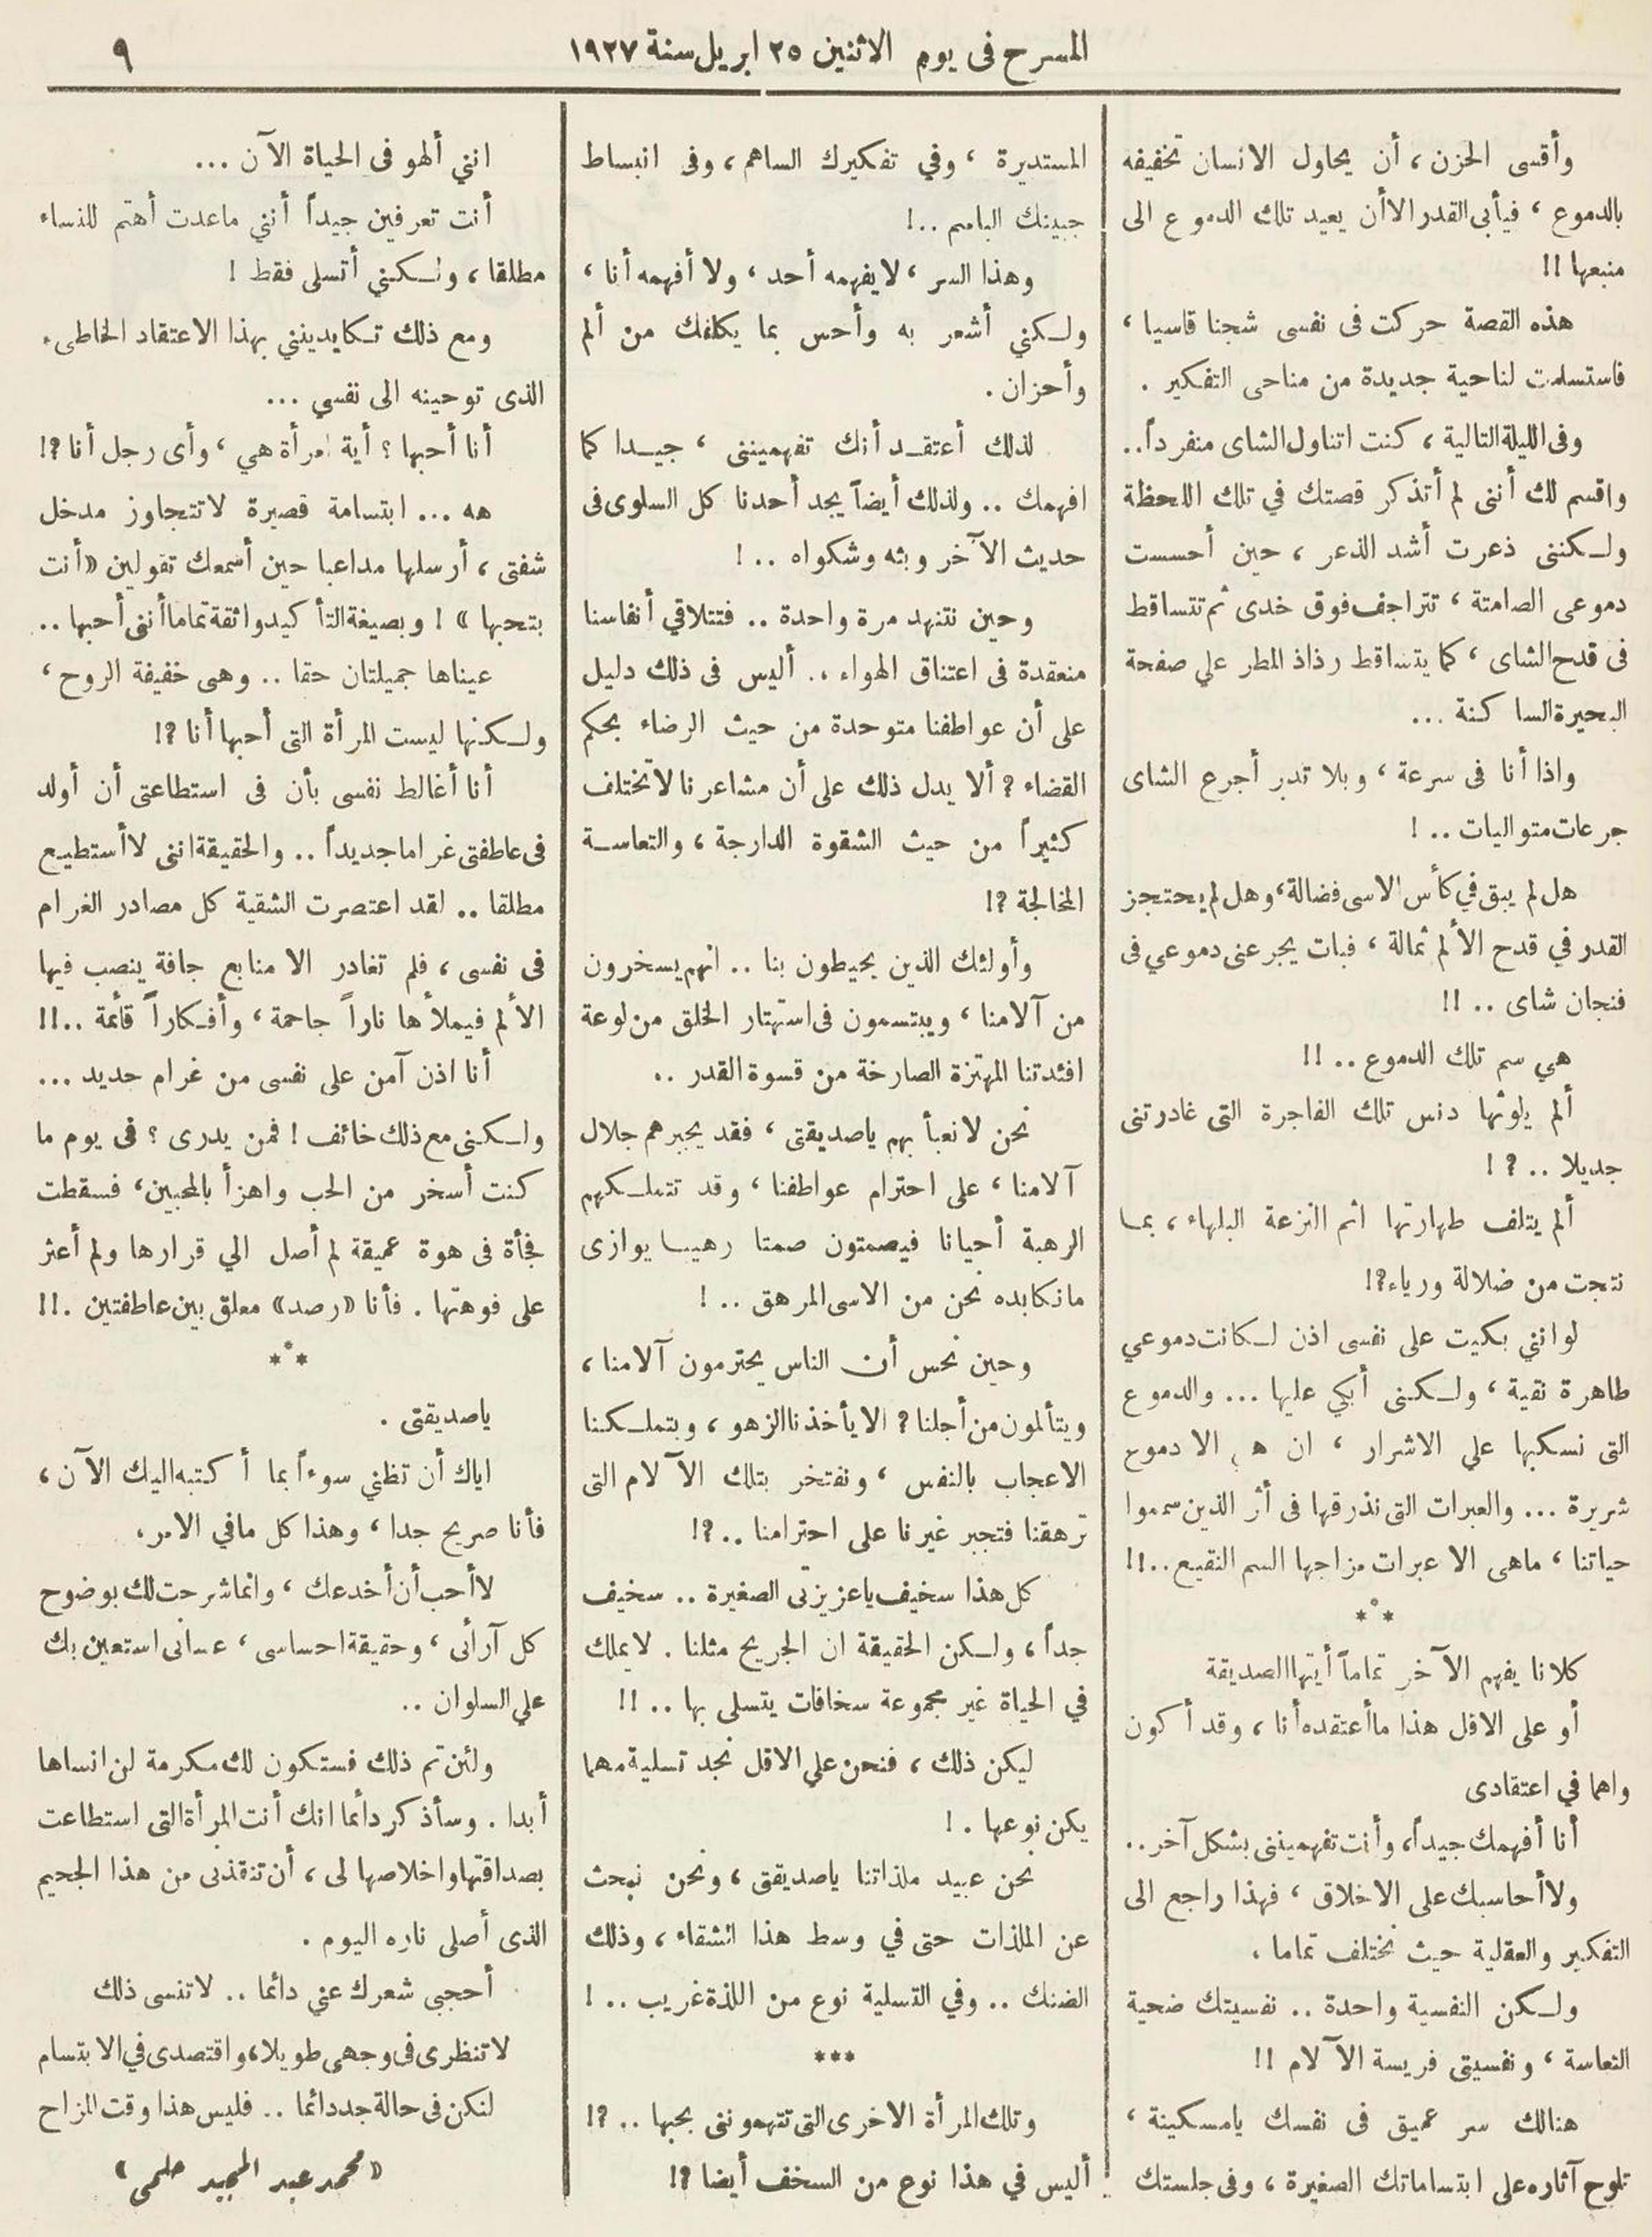 المسرح فى يوم الاثنين ٢٥ ابريل سنة ١٩٢٧
٩
وأقسى الحزن ، أن يحاول الانسان تخفيفه
بالدموع ، فيأبى القدر الا أن يعيد تلك الدموع الى
منبعها !!
هذه القصة حركت فى نفسى شجنا قاسيا ،
فاستسلمت لناحية جديدة من مناحى التفكير .
وفى الليلة التالية ، كنت اتناول الشاى منفرداً ..
واقسم لك أننى لم أتذكر قصتك في تلك اللحظة
ولكننى ذعرت أشد الذعر ، حين أحسست
دموعى الصامتة ، تتراجف فوق خدى ثم تتساقط
فى قدح الشاى ، كما يتساقط رذاذ المطر علي صفحة
البحيرة الساكنة ...
واذا أنا فى سرعة ، وبلا تدبر أجرع الشاى
جرعات متواليات .. !
هل لم يبق في كأس الاسى فضالة ، وهل لم يحتجز
القدر في قدح الألم ثمالة ، فبات يجرعنى دموعي فى
فنجان شاى .. !!
هي سم تلك الدموع .. !!
ألم يلوثها دنس تلك الفاجرة التى غادرتنى
جديلا .. ? !
ألم يتلف طهارتها اثم النزعة البلهاء ، بما
نتجت من ضلالة ورياء ?!
لو اننى بكيت على نفسى اذن لكانت دموعي
طاهرة نقية ، ولكنى أبكي عليها ... والدموع
التى نسكبها علي الاشرار ، ان هي الا دموع
شريرة ... والعبرات التى نذرقها فى أثر الذين سمموا
حياتنا ، ماهى الا عبرات مزاجها السم النقيع .. !!
***
كلانا يفهم الآخر تماماً أيتها الصديقة
أو على الاقل هذا ما أعتقده أنا ، وقد أكون
واهما في اعتقادى
أنا أفهمك جيداً ، وأنت تفهميننى بشكل آخر ..
ولا أحاسبك على الاخلاق ، فهذا راجع الى
التفكير والعقلية حيث نختلف تماما .
ولكن النفسية واحدة .. نفسيتك ضحية
التعاسة ، ونفسيتى فريسة الآلام !!
هنالك سر عميق فى نفسك يامسكينة ،
تلوح آثاره على ابتساماتك الصغيرة ، وفى جلستك
المستديرة ، وفي تفكيرك الساهم ، وفى انبساط
جبينك الباسم .. !
وهذا السر ، لا يفهمه أحد ، ولا أفهمه أنا ،
ولكني أشعر به وأحس بما يكلفك من ألم
وأحزان .
لذلك أعتقد أنك تفهميننى ، جيدا كما
افهمك .. ولذلك أيضاً يجد أحدنا كل السلوى فى
حديث الآخر وبثه وشكواه .. !
وحين نتنهد مرة واحدة .. فتتلاقي أنفاسنا
منعقدة فى اعتناق الهواء .. أليس فى ذلك دليل
على أن عواطفنا متوحدة من حيث الرضاء بحكم
القضاء ? ألا يدل ذلك على أن مشاعرنا لا تختلف
كثيراً من حيث الشقوة الدارجة ، والتعاسة
المخالجة ?!
وأولئك الذين يحيطون بنا .. انهم يسخرون
من آلامنا ، ويبتسمون فى استهتار الخلق من لوعة
افئدتنا المهتزة الصارخة من قسوة القدر ..
نحن لا نعبأ بهم ياصديقتى ، فقد يجبرهم جلال
آلامنا ، على احترام عواطفنا ، وقد تتملكهم
الرهبة أحيانا فيصمتون صمتا رهيبا يوازى
مانكابده نحن من الاسى المرهق .. !
وحين نحس أن الناس يحترمون آلامنا ،
ويتألمون من أجلنا ? الا يأخذنا الزهو ، ويتملكنا
الاعجاب بالنفس ، ونفتخر بتلك الآلام التى
ترهقنا فتجبر غيرنا على احترامنا .. ?!
كل هذا سخيف ياعزيزتى الصغيرة .. سخيف
جداً ، ولكن الحقيقة ان الجريح مثلنا . لا يملك
في الحياة غير مجموعة سخافات يتسلى بها .. !!
ليكن ذلك ، فنحن علي الاقل نجد تسلية مهما
يكن نوعها . !
نحن عبيد ملذاتنا ياصديقتى ، ونحن نبحث
عن الملذات حتى في وسط هذا الشقاء ، وذلك
الضنك .. وفي التسلية نوع من اللذة غريب .. !
***
وتلك المرأة الاخرى التى تتهموننى بحبها .. ?!
أليس في هذا نوع من السخف أيضا ?!
اننى ألهو فى الحياة الآن ...
أنت تعرفين جيداً أنني ماعدت أهتم للنساء
مطلقا ، ولكني أتسلى فقط !
ومع ذلك تكايدينني بهذا الاعتقاد الخاطىء
الذى توحينه الى نفسي ...
أنا أحبها ؟ أية امرأة هي ، وأى رجل أنا ?!
هه ... ابتسامة قصيرة لا تتجاوز مدخل
شفتى ، أرسلها مداعبا حين أسمعك تقولين «أنت
بتحبها» ! وبصيغة التأكيد واثقة تماما أننى أحبها ..
عيناها جميلتان حقا .. وهى خفيفة الروح ،
ولكنها ليست المرأة التى أحبها أنا ?!
أنا أغالط نفسى بأن فى استطاعتى أن أولد
فى عاطفتى غراما جديداً .. والحقيقة اننى لا أستطيع
مطلقا .. لقد اعتصرت الشقية كل مصادر الغرام
فى نفسى ، فلم تغادر الا منابع جافة ينصب فيها
الألم فيملأها ناراً جاحمة ، وأفكاراً قائمة .. !!
أنا اذن آمن على نفسى من غرام حديد ...
ولكنى مع ذلك خائف ! فمن يدرى ؟ فى يوم ما
كنت أسخر من الحب واهزأ بالمحبين ، فسقطت
فجأة فى هوة عميقة لم أصل الي قرارها ولم أعثر
على فوهتها . فأنا «رصد» معلق بين عاطفتين .!!
***
ياصديقتى .
اياك أن تظني سوءاً بما أكتبه اليك الآن ،
فأنا صريح جدا ، وهذا كل مافي الامر .
لا أحب أن أخدعك ، وانما شرحت لك بوضوح
كل آرائى ، وحقيقة احساسى ، عسانى استعين بك
علي السلوان ..
ولئن تم ذلك فستكون لك مكرمة لن انساها
أبدا . وسأذكر دائما انك أنت المرأة التى استطاعت
بصداقتها واخلاصها لى ، أن تنقذنى من هذا الجحيم
الذى أصلى ناره اليوم .
أحجبى شعرك عني دائما .. لا تنسى ذلك
لا تنظرى فى وجهى طويلا ، واقتصدى في الابتسام
لنكن فى حالة جد دائما .. فليس هذا وقت المزاح
«محمد عبد المجيد حلمى»